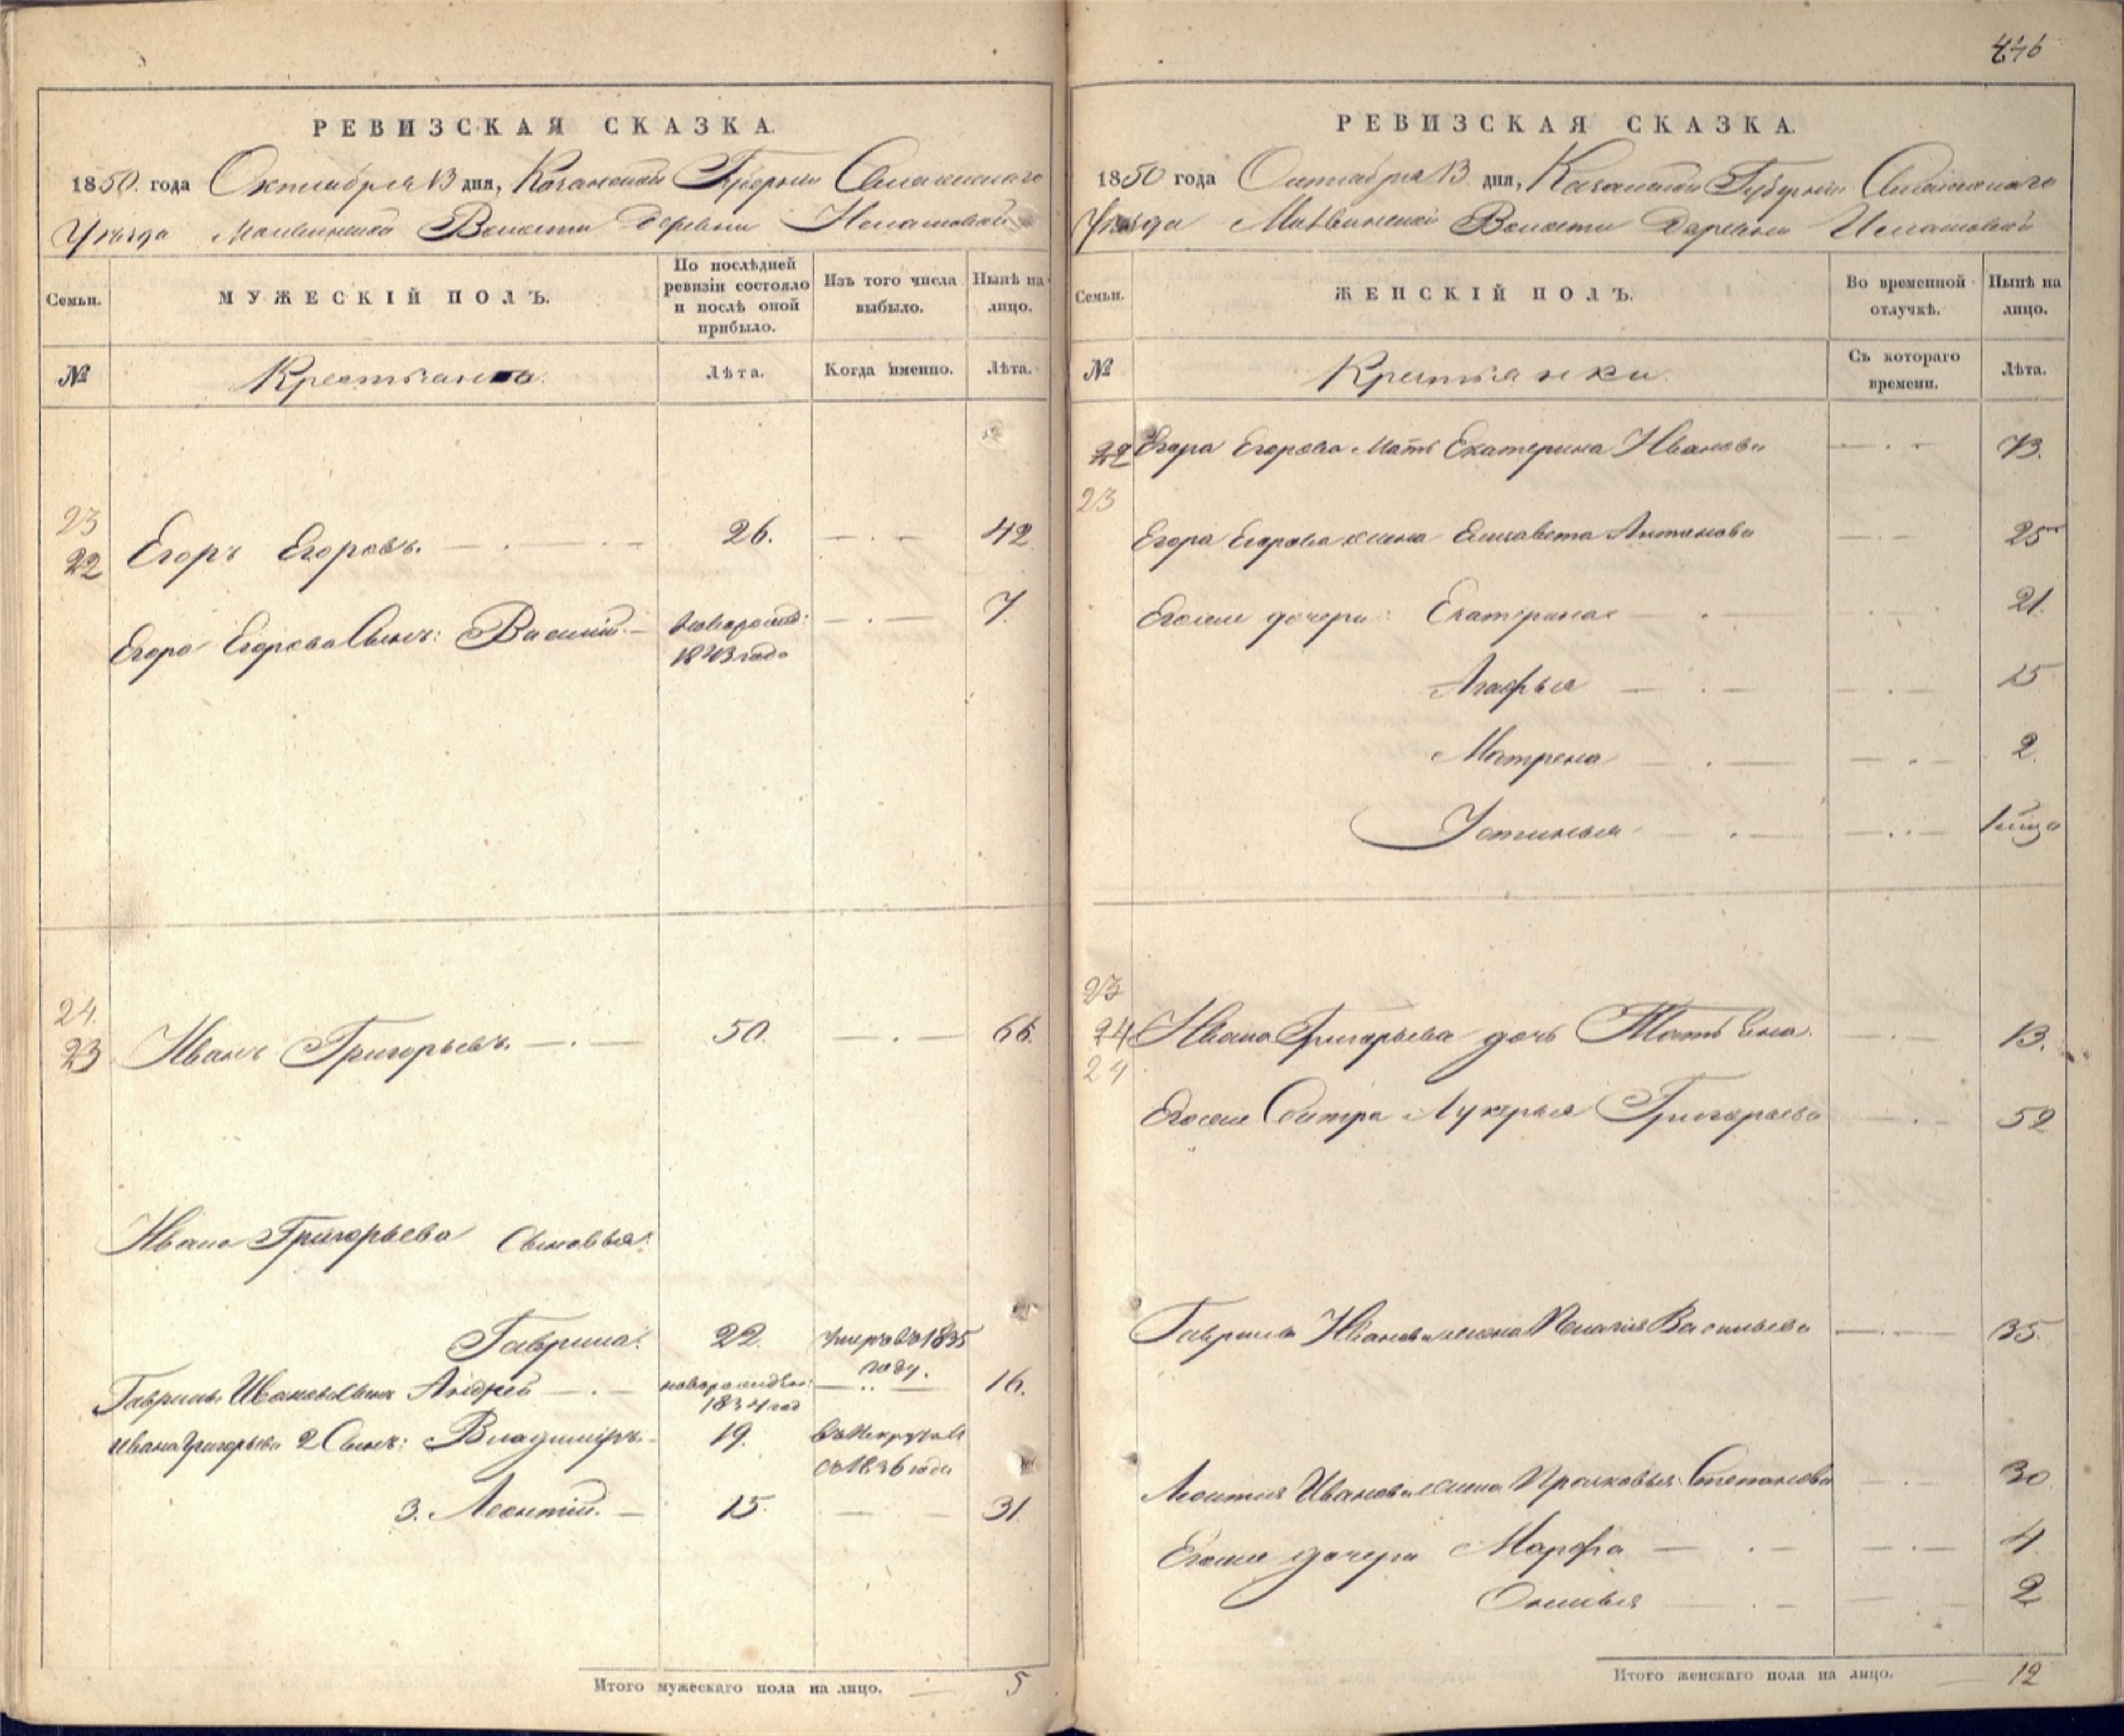 446
РЕВИЗСКАЯ СКАЗКА.
1850. года Октября 13 дня, Казанской Губерніи Спасскаго
Уѣзда Волости Деревни
Семьи.
МУЖЕСКІЙ ПОЛЪ.
По послѣдней ревизіи состояло и послѣ оной прибыло.
Изъ того числа выбыло.
Нынѣ на лицо.
№
Крестьяне
Лѣта.
Когда именно.
Лѣта.
23
22 Егоръ Егоровъ. 26. 42
Егора Егорова Сынъ: Василій новорожд: 7.
1843 года
24.
23 Иванъ Григорьевъ. 50. 66.
Ивана Григорьева Сыновья:
Гаврила: 22. Умеръ въ 1835
году.
Гаврилы Иванова Сынъ Андрей новорожден: 16.
1834 год
Ивана Григорьева 2 Сынъ: Владиміръ. 19. въ
съ 1836 года
3. Леонтій. 15. 31.
Итого мужескаго пола на лицо. 5
РЕВИЗСКАЯ СКАЗКА.
1850 года Октября 13. дня, Казанской Губерніи Спасскаго
Уѣзда Волости Деревни
Семьи.
ЖЕНСКІЙ ПОЛЪ.
Во временной отлучкѣ.
Нынѣ на лицо.
№
Крестьянки
Съ котораго времени.
Лѣта.
22 Егора Егорова Мать Екатерина Иванова 73.
23
Егора Егорова жена Елисавета Антонова 25
Егоже дочери: Екатерина 21.
Агафья 15
Матрена 2.
Устинья
23
24 Ивана Григорьева дочь Татьяна. 13.
24
Егоже Сестра Лукерья Григорьева 52
Гаврилы Иванова жена Пелагія Васильева 35.
Леонтія Иванова жена Прасковья Степанова 30
Егоже дочери Марфа 4.
2
Итого женскаго пола на лицо. 12